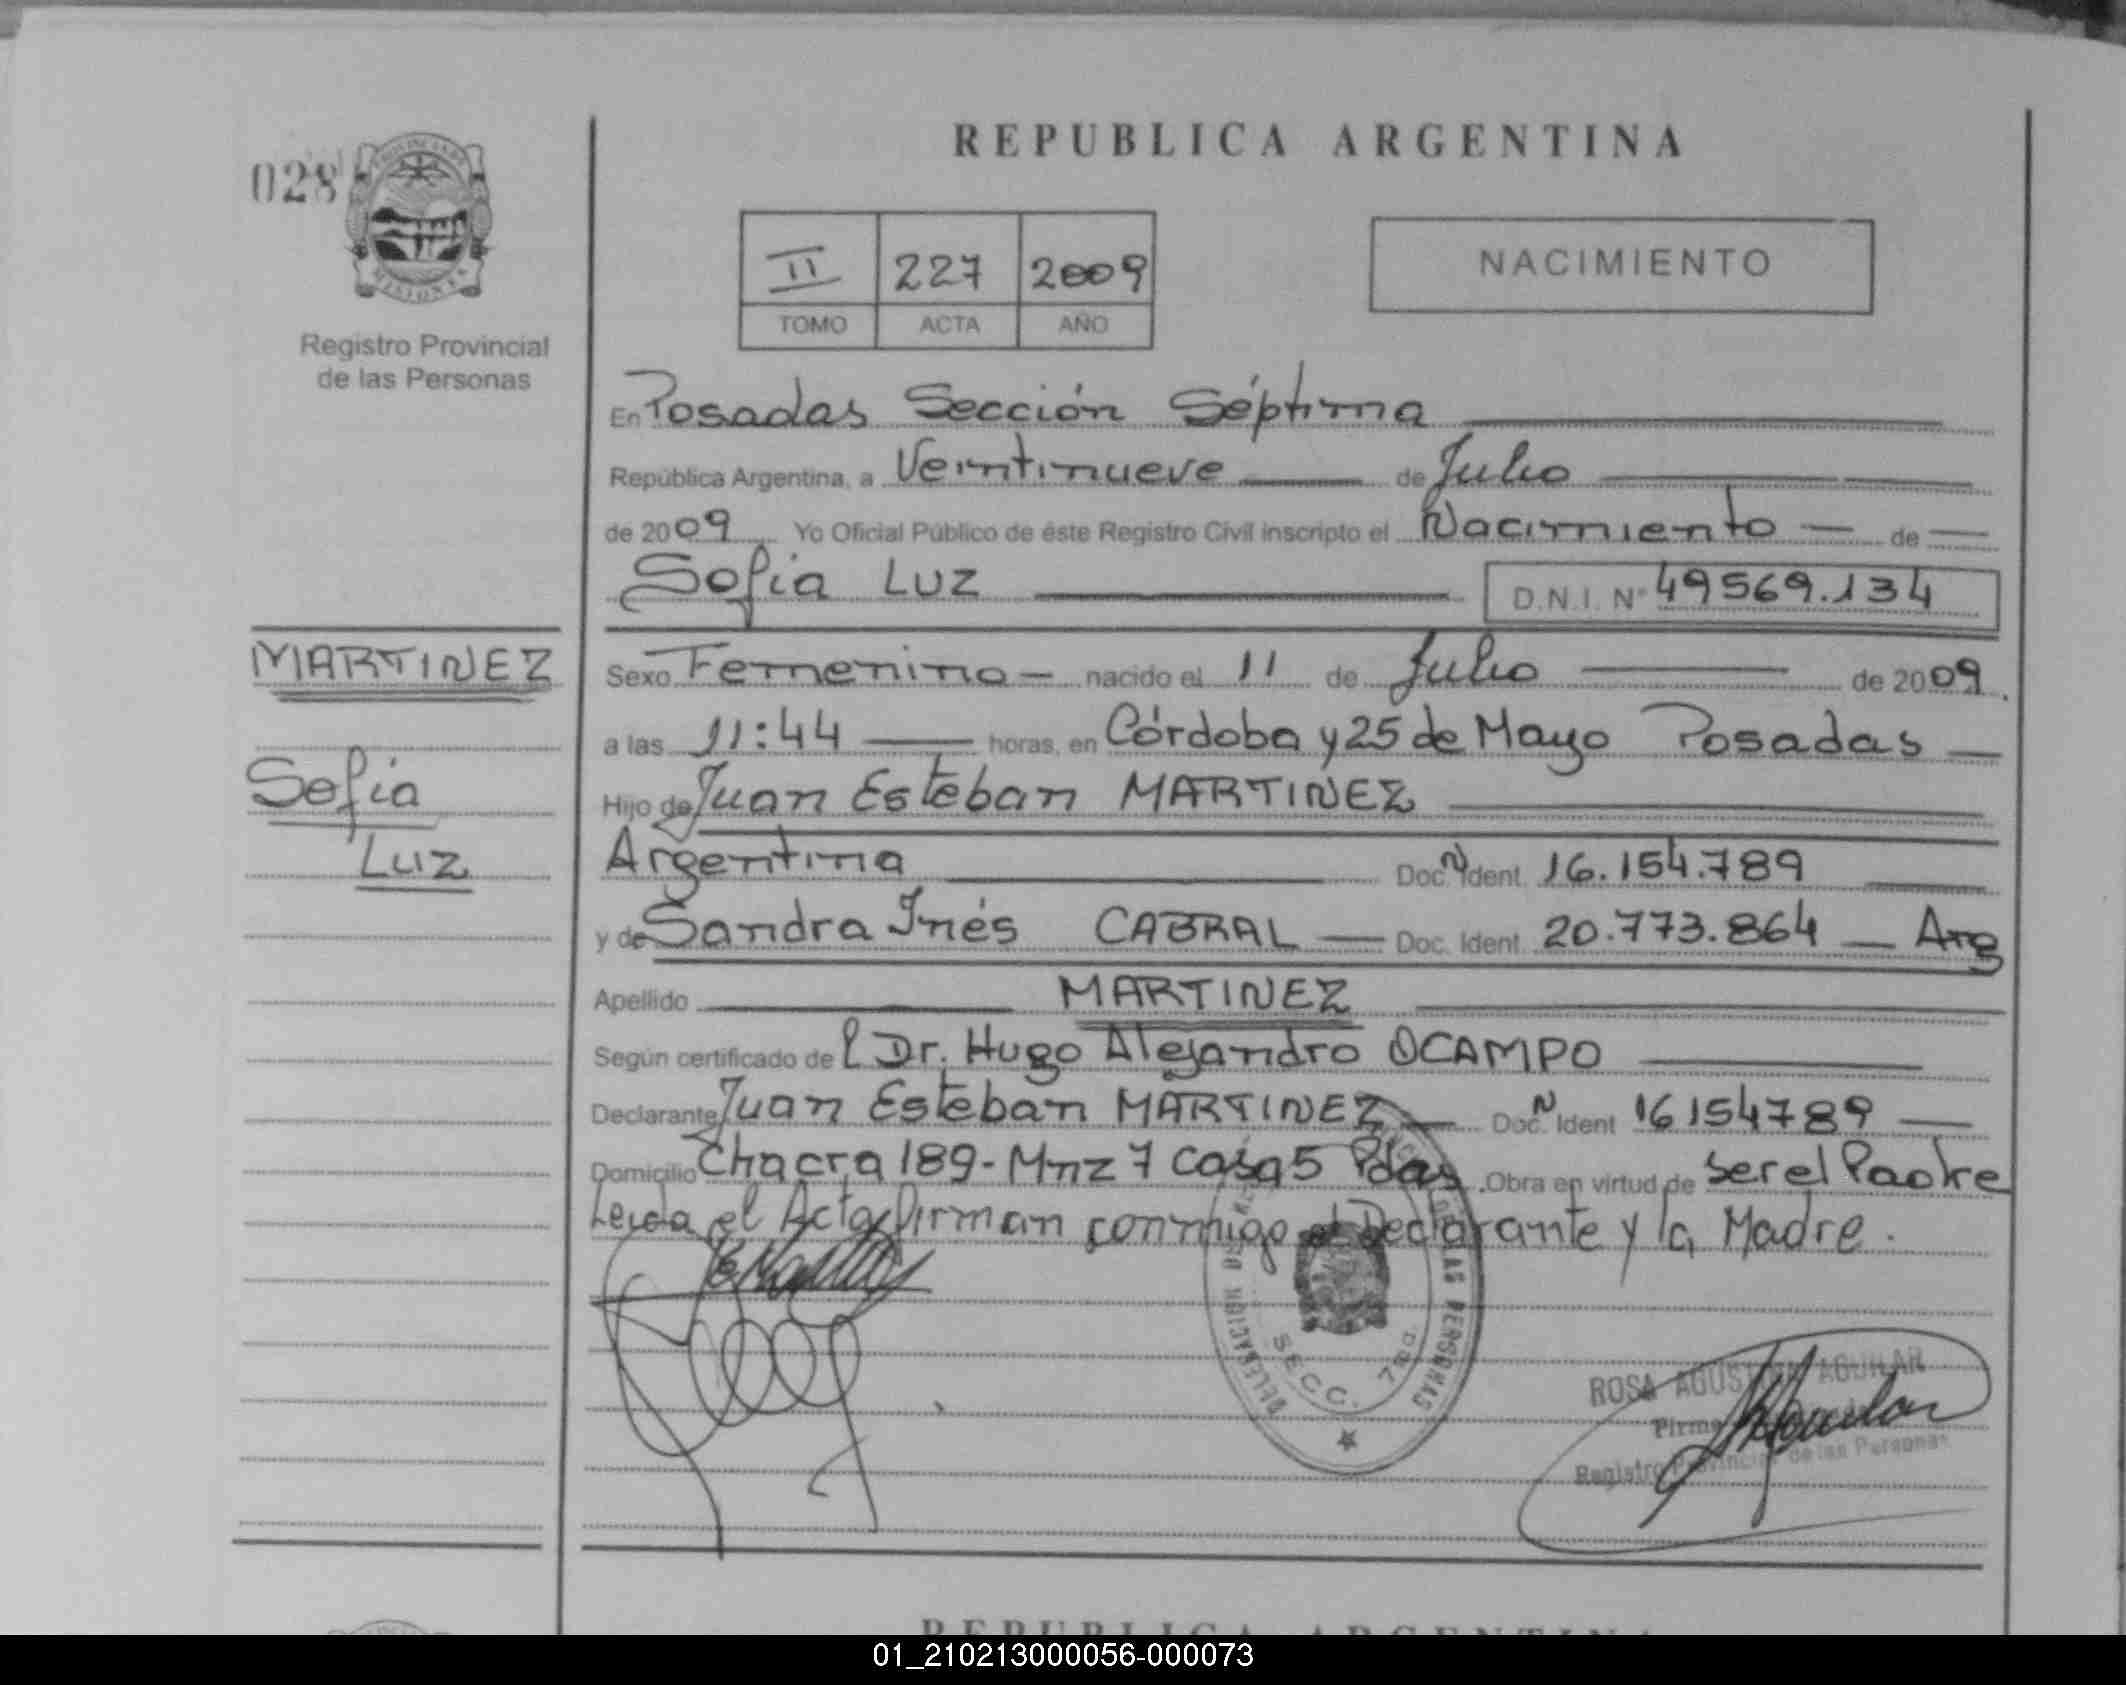 REPUBLICA ARGENTINA
028
PROVINCIA DE
MISIONES
Registro Provincial
de las Personas
II 227 2009
TOMO ACTA AÑO
NACIMIENTO
En Posadas Sección Séptima
República Argentina, a Veintinueve de Julio
de 2009 Yo Oficial Público de éste Registro Civil inscripto el Nacimiento de
Sofia Luz D.N.I. Nº 49569.134
MARTINEZ
Sofia
Luz
Sexo Femenino nacido el 11 de Julio de 2009
a las 11:44 horas, en Córdoba y 25 de Mayo Posadas
Hijo de Juan Esteban MARTINEZ
Argentina Doc. N Ident. 16.154.789
y de Sandra Inés CABRAL Doc. Ident. 20.773.864 Arg
Apellido MARTINEZ
Según certificado del Dr. Hugo Alejandro OCAMPO
Declarante Juan Esteban MARTINEZ Doc. N Ident 16154789
Domicilio Chacra 189-Mnz 7 Casa 5 Pdas. Obra en virtud de ser el Padre
Leida el Acta firman conmigo el Declarante y la Madre.
DELEGACION
DE LAS PERSONAS
SECC. 7ma.
ROSA AGUSTINA AGUILAR
Firma
Registro Provincial de las Personas
REPUBLICA ARGENTINA
01_210213000056-000073